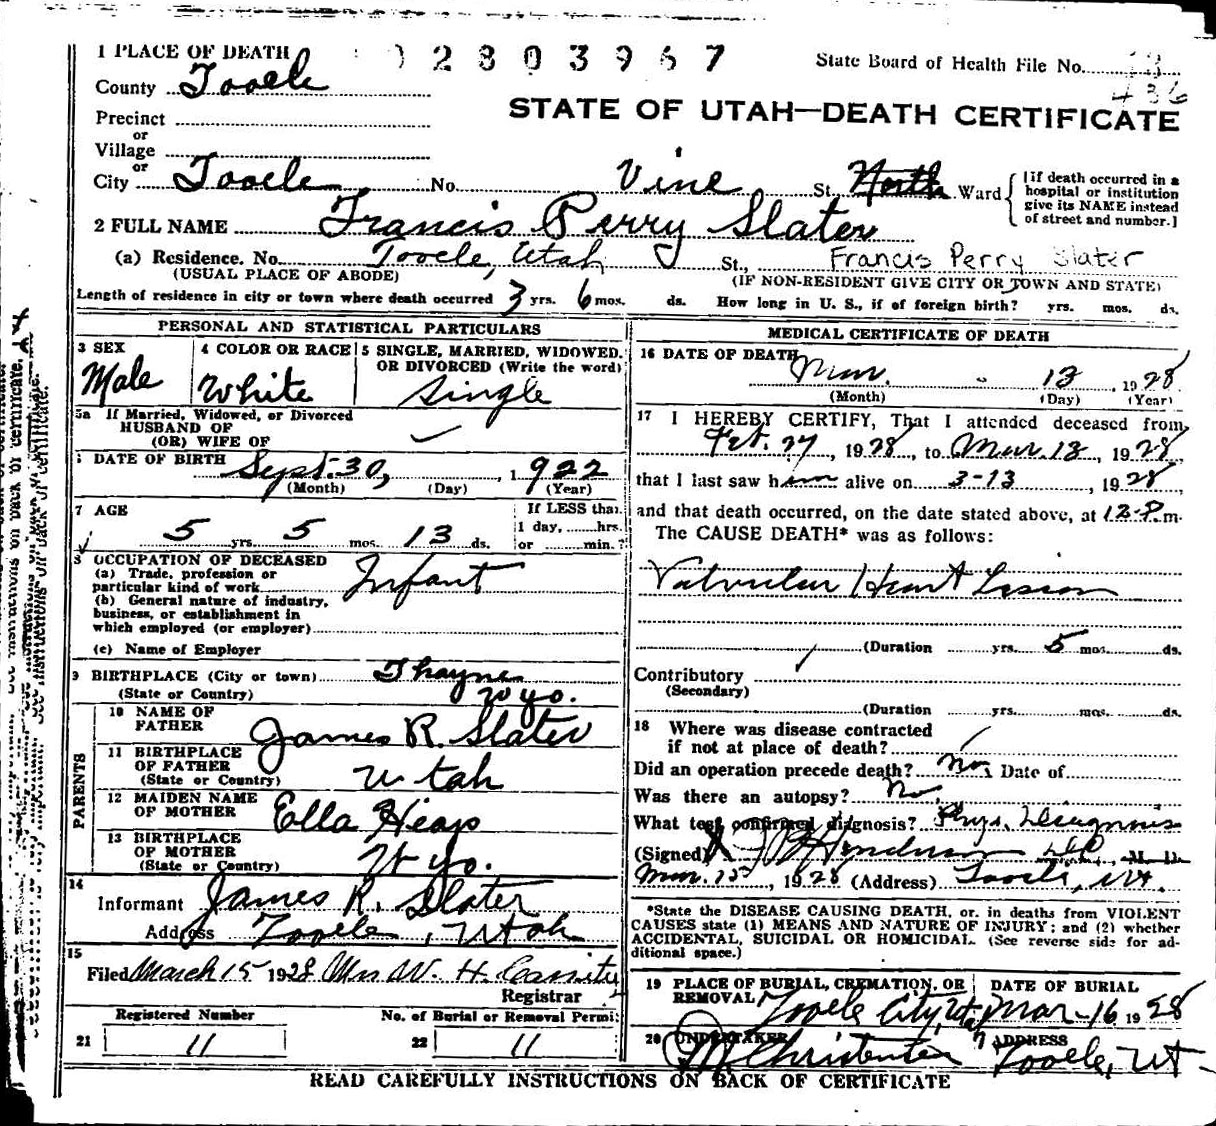 1 PLACE OF DEATH
02803967
State Board of Health File No. 
436
County Tooele
STATE OF UTAH—DEATH CERTIFICATE
Precinct
or
Village
or
City Tooele No. Vine St. North Ward
[If death occurred in a
hospital or institution
give its NAME instead
of street and number.]
2 FULL NAME Francis Perry Slater
(a) Residence. No. Tooele, Utah St., Francis Perry Slater
(USUAL PLACE OF ABODE) (IF NON-RESIDENT GIVE CITY OR TOWN AND STATE)
Length of residence in city or town where death occurred 3 yrs. 6 mos. ds. How long in U. S., if of foreign birth? yrs. mos. ds.
PERSONAL AND STATISTICAL PARTICULARS
3 SEX
Male
4 COLOR OR RACE
White
5 SINGLE, MARRIED, WIDOWED,
OR DIVORCED (Write the word)
Single
5a If Married, Widowed, or Divorced
HUSBAND OF
(OR) WIFE OF
DATE OF BIRTH Sept. 30, 1922
(Month) (Day) (Year)
7 AGE
5 yrs. 5 mos. 13 ds.
If LESS than
1 day, hrs.
or min.?
8 OCCUPATION OF DECEASED
(a) Trade, profession or
particular kind of work Infant
(b) General nature of industry,
business, or establishment in
which employed (or employer)
(c) Name of Employer
9 BIRTHPLACE (City or town) Thayne
(State or Country) Wyo.
PARENTS
10 NAME OF
FATHER James R. Slater
11 BIRTHPLACE
OF FATHER
(State or Country) Utah
12 MAIDEN NAME
OF MOTHER Ella Heap
13 BIRTHPLACE
OF MOTHER
(State or Country) Wyo.
14
Informant James R. Slater
Address Tooele, Utah
15
Filed March 15 1928 Mrs W. H. Cassity
Registrar
Registered Number No. of Burial or Removal Permit
21 11 22 11
MEDICAL CERTIFICATE OF DEATH
16 DATE OF DEATH
Mar. 13, 1928
(Month) (Day) (Year)
17 I HEREBY CERTIFY, That I attended deceased from
Feb. 27, 1928, to Mar. 13, 1928,
that I last saw him alive on 3-13, 1928,
and that death occurred, on the date stated above, at 12 P.m.
The CAUSE DEATH* was as follows:
Valvular Heart Lesion
(Duration yrs. 5 mos. ds.
Contributory
(Secondary)
(Duration yrs. mos. ds.
18 Where was disease contracted
if not at place of death?
Did an operation precede death? No. Date of
Was there an autopsy? No.
What test confirmed diagnosis? Phys. Diagnosis
(Signed) Henderson M. D.
Mar. 15, 1928 (Address) Tooele, Ut.
*State the DISEASE CAUSING DEATH, or, in deaths from VIOLENT
CAUSES state (1) MEANS AND NATURE OF INJURY; and (2) whether
ACCIDENTAL, SUICIDAL OR HOMICIDAL. (See reverse side for ad-
ditional space.)
19 PLACE OF BURIAL, CREMATION, OR
REMOVAL Tooele City, Utah
DATE OF BURIAL
Mar-16 1928
20 UNDERTAKER
M Christensen
ADDRESS
Tooele, Ut
READ CAREFULLY INSTRUCTIONS ON BACK OF CERTIFICATE